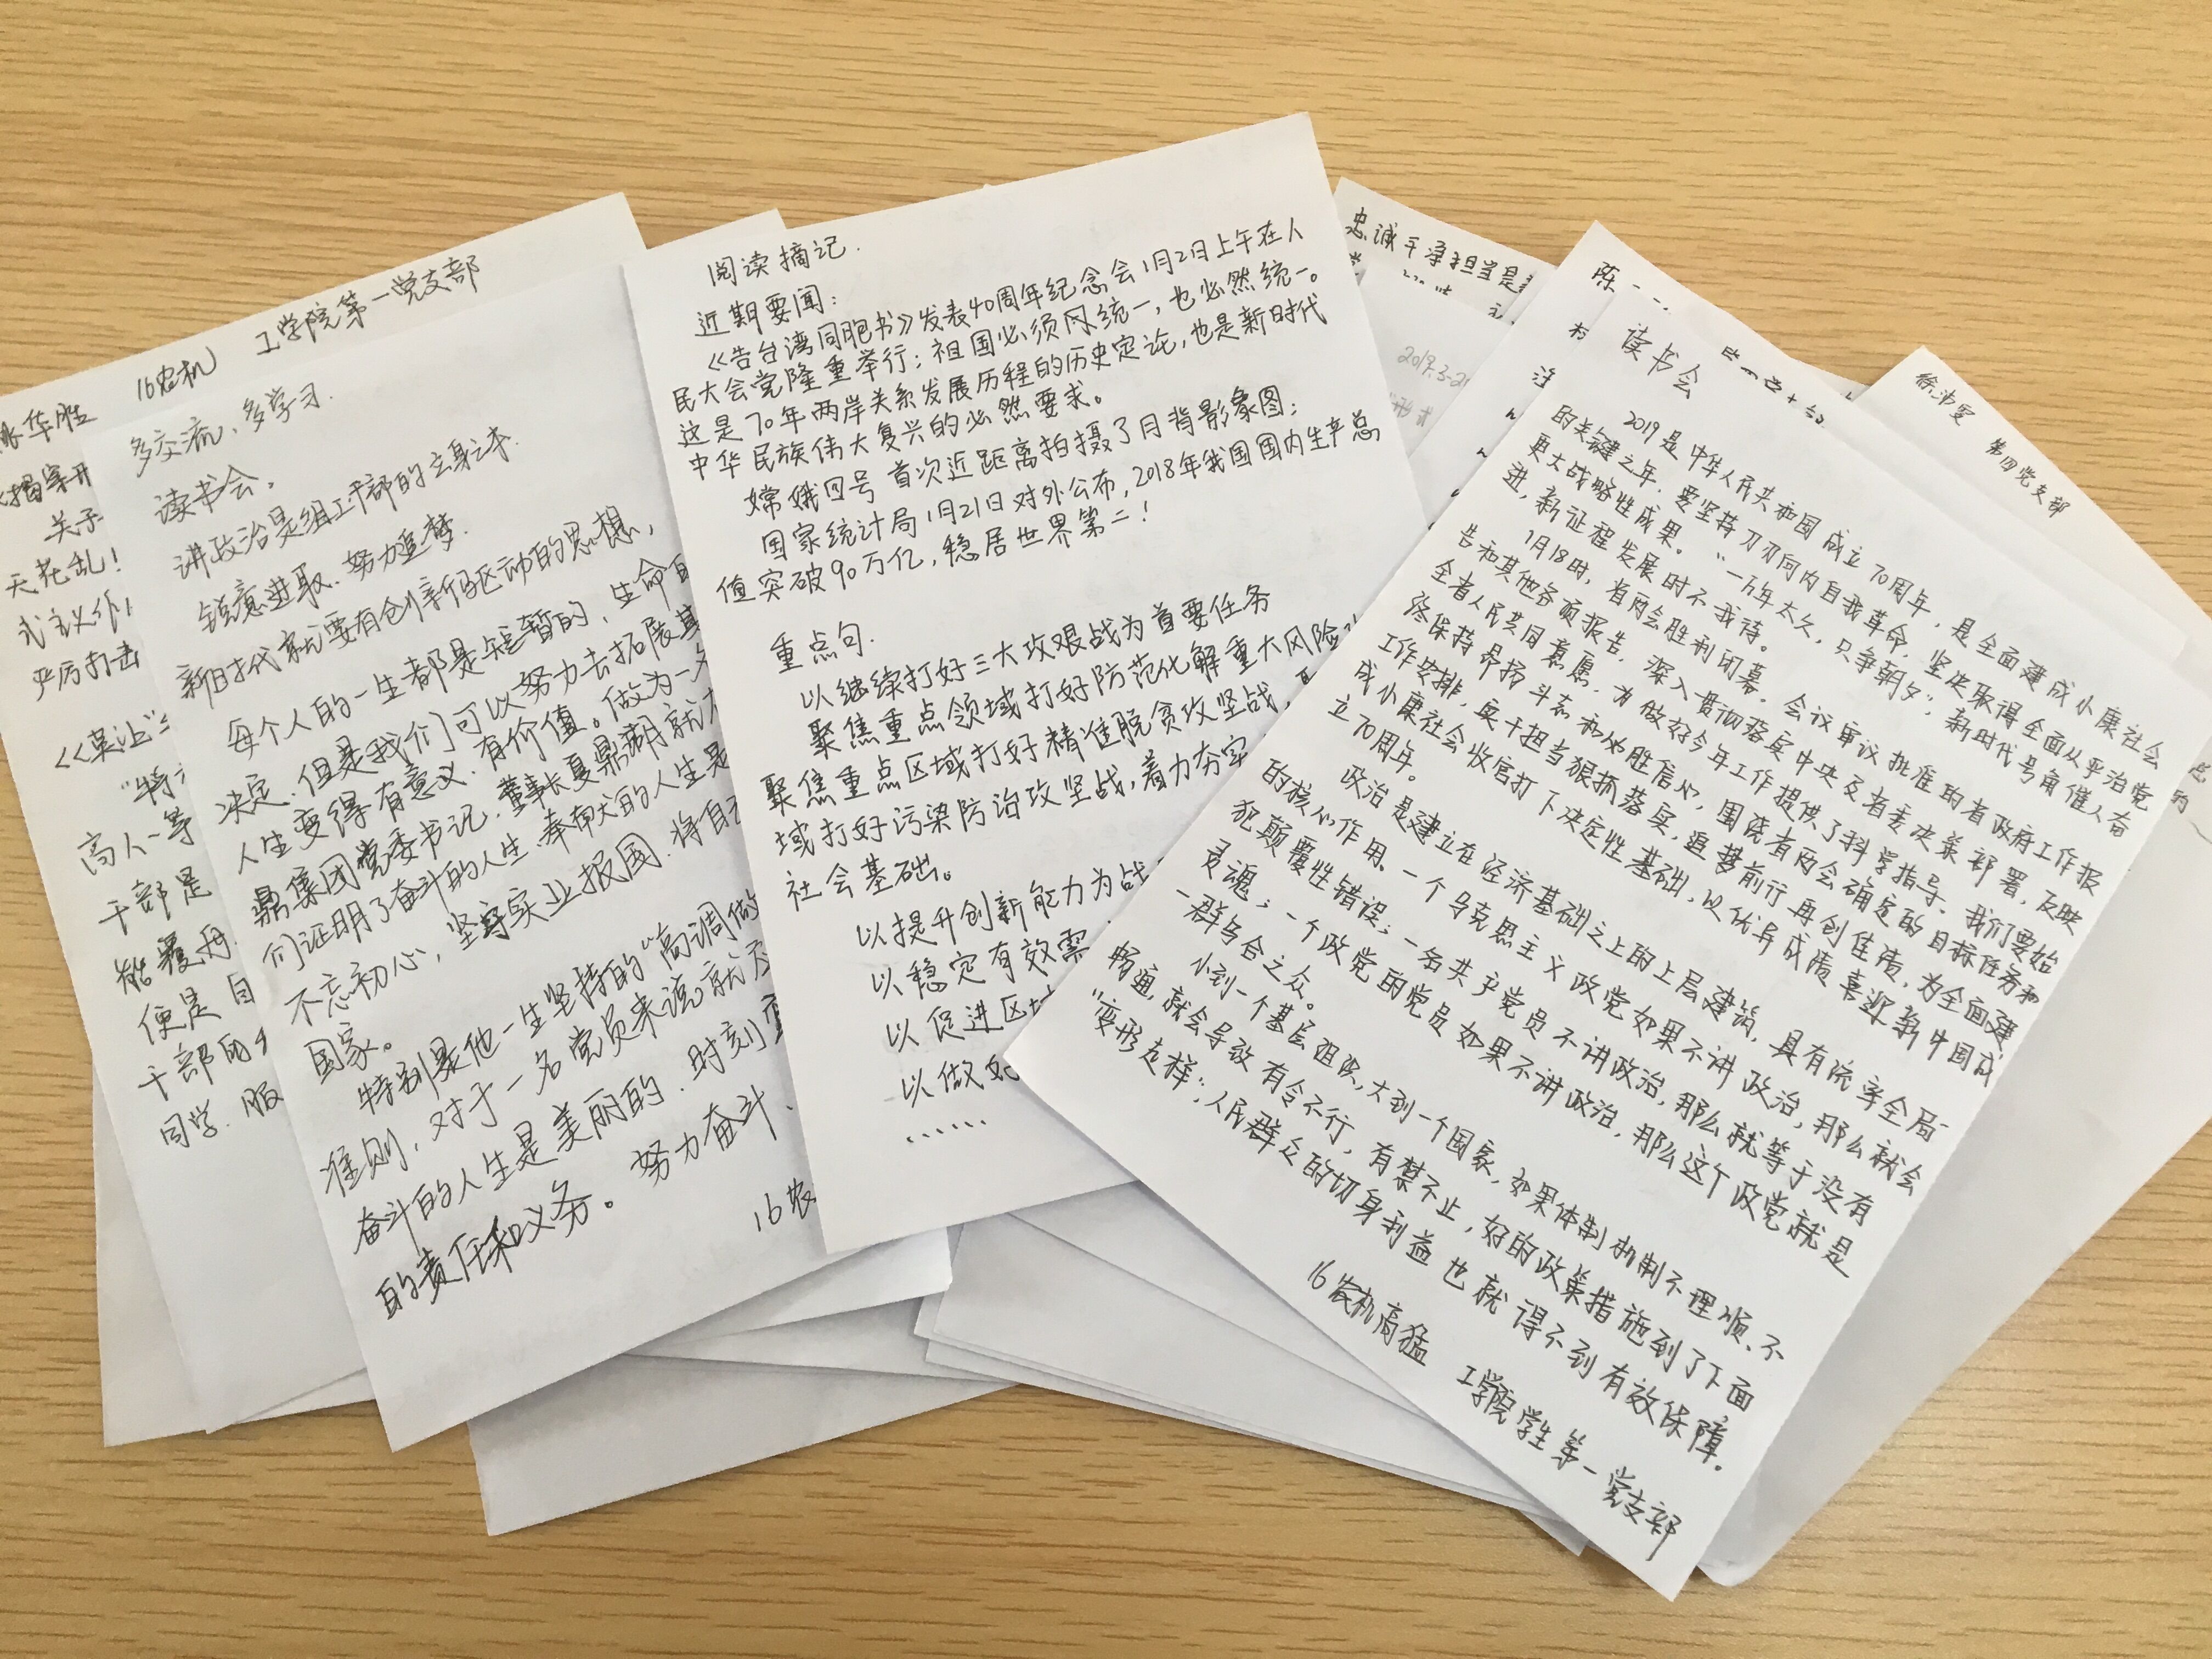 华胜 16农机 工学院第一党支部
关于
天花乱!
式主义作
严厉打击
高人一等
干部是
能覆舟
便是自
干部的
同学.服
多交流、多学习.
读书会。
讲政治是组工干部的立身之本.
锐意进取.努力追梦.
新时代就要有创新驱动的思想,
每个人的一生都是短暂的,生命
决定.但是我们可以努力去拓展其
人生变得有意义.有价值。做为一名
鼎集团党委书记.董事长夏鼎湖就
们证明了奋斗的人生.奉献的人生是
不忘初心,坚守实业报国.将自己
国家。
特别是他一生坚持的“高调做
准则,对于一名党员来说就应
奋斗的人生是美丽的.时刻
的责任和义务。努力奋斗、
16农
阅读摘记.
近期要闻:
《告台湾同胞书》发表40周年纪念会1月2日上午在人
民大会党隆重举行;祖国必须统一,也必然统一。
这是70年两岸关系发展历程的历史定论,也是新时代
中华民族伟大复兴的必然要求。
嫦娥四号首次近距离拍摄了月背影象图;
国家统计局1月21日对外公布,2018年我国国内生产总
值突破90万亿,稳居世界第二!
重点句.
以继续打好三大攻艰战为首要任务
聚焦重点领域打好防范化解重大风险
聚焦重点区域打好精准脱贫攻坚战,
域打好污染防治攻坚战,着力夯实
社会基础。
以提升创新能力为战
以稳定有效需
以促进区域
以做好
......
忠诚干净担当是
2019.3-21
陈
读书会
2019是中华人民共和国成立70周年,是全面建成小康社会
的关键之年.要坚持刀刃向内自我革命,坚决取得全面从严治党
更大战略性成果。“一万年太久,只争朝夕”,新时代号角催人奋
进,新征程发展时不我待。
1月18时,省两会胜利闭幕。会议审议批准的省政府工作报
告和其他各项报告,深入贯彻落实中央及省委决策部署,反映
全省人民共同意愿,为做好今年工作提供了科学指导。我们要始
终保持昂扬斗志和必胜信心,围绕省两会确定的目标任务和
工作安排,实干担当狠抓落实,追梦前行再创佳绩,为全面建
成小康社会收官打下决定性基础,以优异成绩喜迎新中国成
立70周年。
政治是建立在经济基础之上的上层建筑,具有统率全局
的核心作用.一个马克思主义政党如果不讲政治,那么就会
犯颠覆性错误;一名共产党员不讲政治,那么就等于没有
灵魂;一个政党的党员如果不讲政治,那么这个政党就是
一群乌合之众。
小到一个基层组织,大到一个国家,如果体制机制不理顺、不
畅通,就会导致有令不行,有禁不止,好的政策措施到了下面
“变形走样”,人民群众的切身利益也就得不到有效保障.
16农机高猛 工学院学生第一党支部
第四党支部